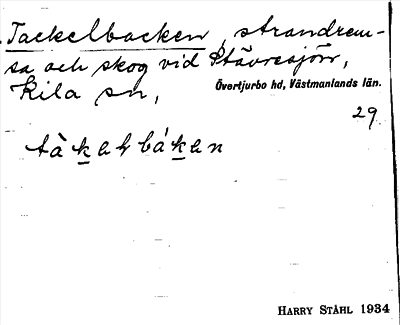 Tackelbacken, strandrem-
sa och skog vid Stävresjön,
Kila sn, Övertjurbo hd, Västmanlands län.
29.
HARRY STÅHL 1934